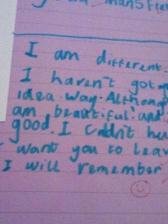 I am different.
I haven't got
idea way. Althoug
am beautiful and
good. I can't he
want you to leav
I will remember